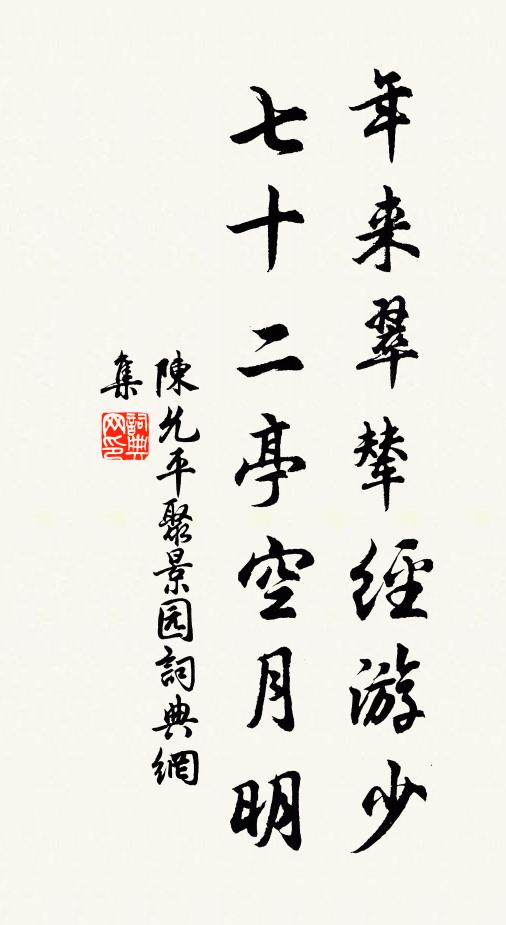 年来翠辇經游少
七十二亭空月明
陳允平聚景园詞典網
集
詞典网印